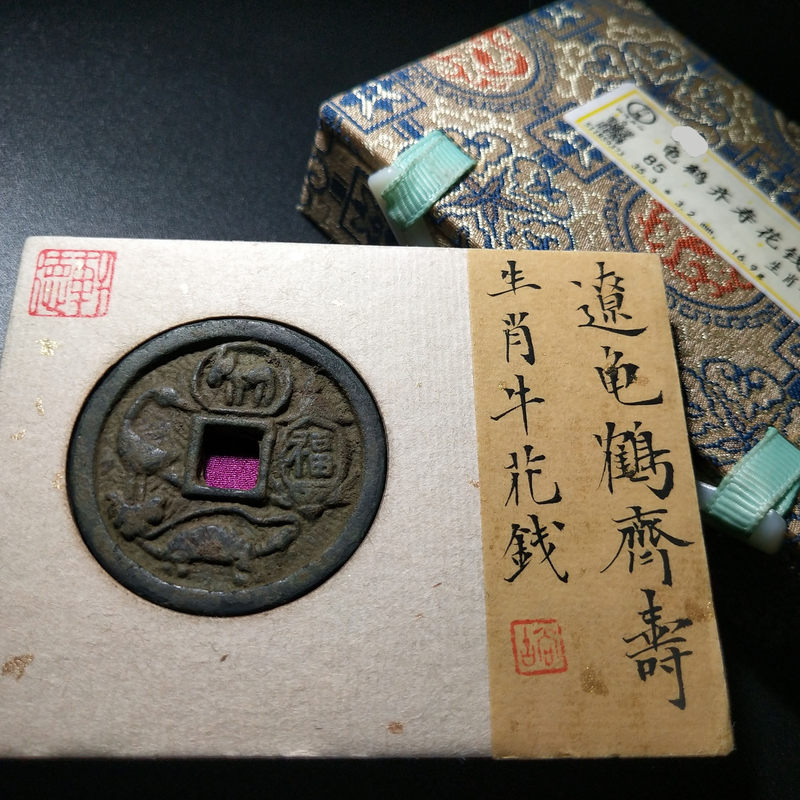 遼龟鶴齊壽
生肖牛花銭
福
龟鹤齐寿花钱
85
生肖
3.2 mm, 16.9g